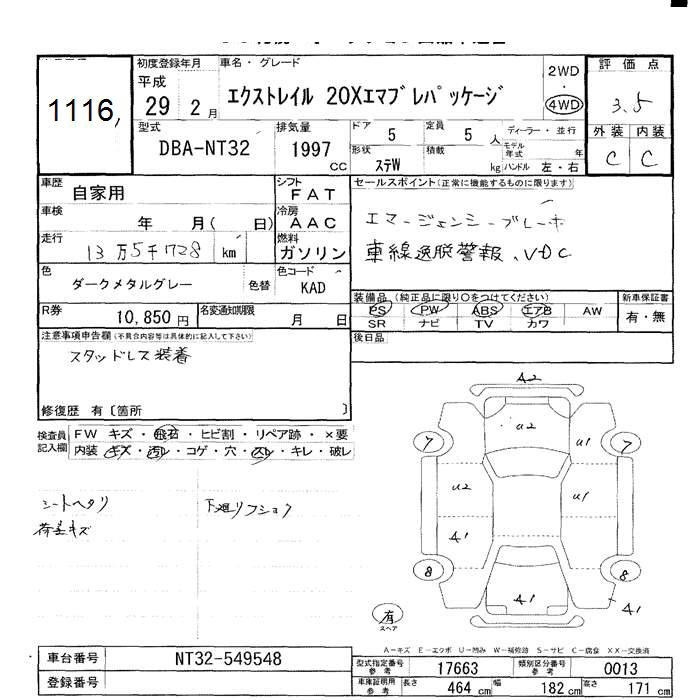 1116
初度登録年月
平成
29 2 月
車名・グレード
エクストレイル 20Xエマブレパッケージ
2WD
・
4WD
評価点
3.5
外装 内装
C C
型式
DBA-NT32
排気量
1997
CC
ドア
5
定員
5 人
形状
ステW
積載
kg
ディーラー・並行
モデル年式 年
ハンドル 左・右
車歴
自家用
シフト
FAT
車検
年 月( 日)
冷房
AAC
走行
13万5千728 km
燃料
ガソリン
色
ダークメタルグレー 色替
色コード
KAD
R券
10,850 円
名変通知期限
月 日
セールスポイント(正常に機能するものに限ります)
エマージェンシーブレーキ
車線逸脱警報、VDC
装備品 (純正品に限り○をつけてください)
PS PW ABS エアB AW
SR ナビ TV カワ
新車保証書
有・無
後日品
注意事項申告欄(不具合内容等は具体的に記入して下さい)
スタッドレス装着
修復歴 有〔箇所 〕
検査員記入欄
FW キズ・飛石・ヒビ割・リペア跡・×要
内装・キズ・汚レ・コゲ・穴・スレ・キレ・破レ
シートヘタリ 下廻リフショク
荷室キズ
A2
7 U2 U1 7
U2 U1
A1
8 8
A1 A1
有
スペア
A−キズ E−エクボ U−凹み W−補修跡 S−サビ C−腐食 XX−交換済
車台番号 NT32-549548
登録番号
型式指定番号 参考 17663 類別区分番号 参考 0013
車庫証明用 参考 長さ 464 cm 幅 182 cm 高さ 171 cm